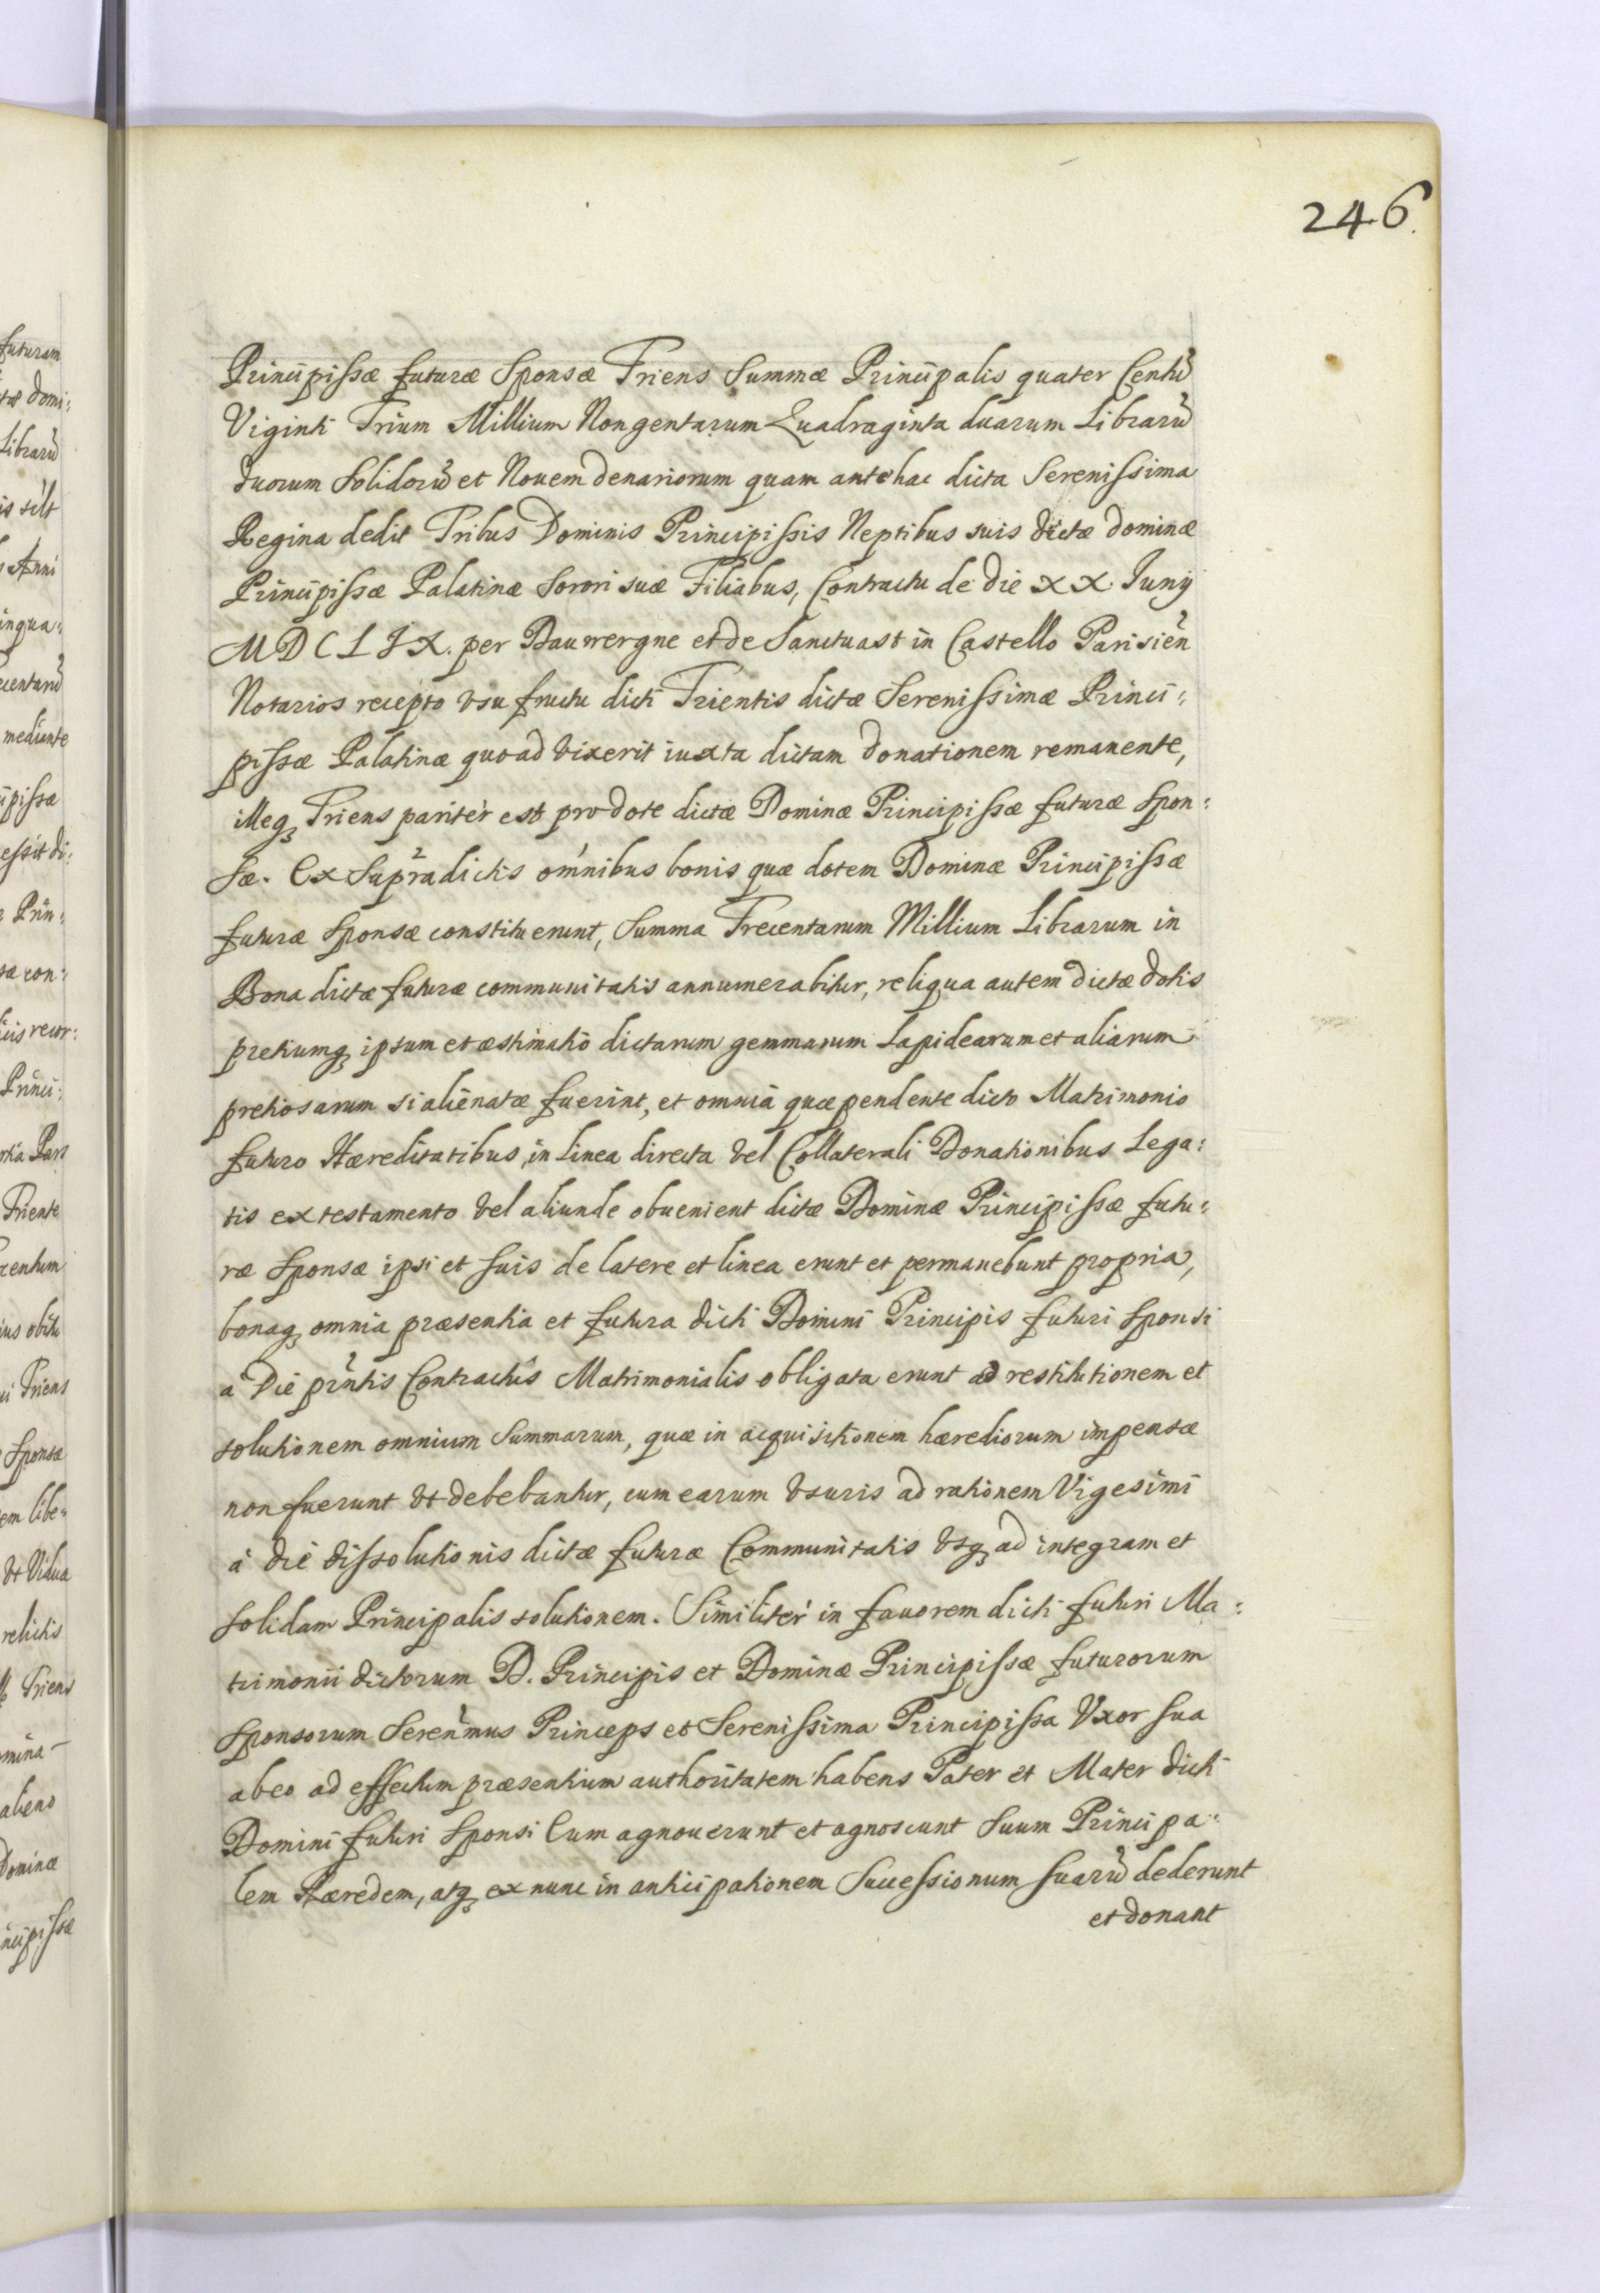 246.
Principissæ futuræ Sponsæ Triens Summæ Principalis quater Centũ
Viginti Trium Millium Nongentarum Quadraginta duarum Librarũ
duorum Solidorũ et Nouem denariorum quam antehac dicta Serenissima
Regina dedit Tribus Dominis Principissis Neptibus suis dictæ dominæ
Principissæ Palatinæ Sorori suæ Filiabus, Contractu de die XX. Junÿ
MDCLIX. per Bauwergne et de Sanctuast in Castello Parisieñ
Notarios recepto vsu fructu dicti Trientis dictæ Serenissimæ Princi:
pissæ Palatinæ quoad vixerit iuxta dictam donationem remanente,
illeq Triens paritèr est pro dote dictæ Dominæ Principissæ futuræ Spon:
sæ. Ex Supradictis omnibus bonis quæ dotem Dominæ Principissæ
futuræ Sponsæ constituerunt, Summa Trecentarum Millium Librarum in
Bona dictæ futuræ communitatis annumerabitur, reliqua autem dictæ dotis
pretiumq ipsum et æstimatio dictarum gemmarum Lapidearum et aliarum
pretiosarum si alienatæ fuerint, et omnia quæ pendente dicto Matrimonio
futuro Hæreditatibus, in linea directa vel Collaterali Donationibus Lega:
tis ex testamento vel aliunde obuenient dictæ Dominæ Principissæ futu:
ræ Sponsæ ipsi et suis de latere et linea erunt et permanebunt propria,
bonaq omnia præsentia et futura dicti Domini Principis futuri Sponsi
a Die prñtis Contractûs Matrimonialis obligata erunt ad restitutionem et
solutionem omnium Summarum, quæ in acquisitionem hærediorum impensæ
non fuerunt vt debebantur, cum earum vsuris ad rationem Vigesimi
à die dissolutionis dictæ futuræ Communitatis vsq ad integram et
solidam Principalis solutionem. Similitèr in fauorem dicti futuri Ma:
trimonii dictorum D. Principis et Dominæ Principissæ futurorum
Sponsorum Sereñmus Princeps et Serenissima Principissa Vxor sua
ab eo ad effectum præsentium authoritatem habens Pater et Mater dicti
Domini futuri Sponsi Eum agnouerunt et agnoscunt Suum Principa:
lem Hæredem, atq ex nunc in anticipationem Successionum suarũ dederunt
et donant